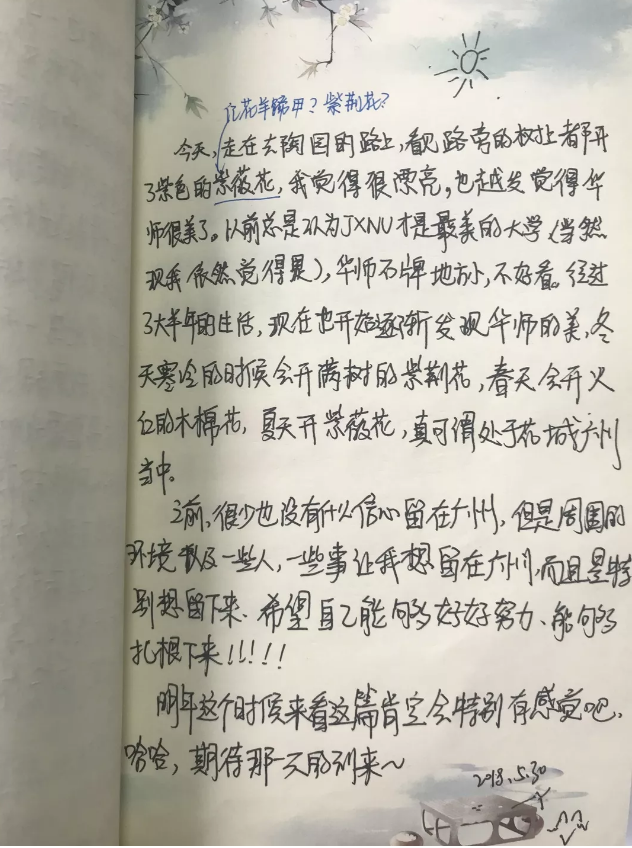 花羊蹄甲？紫荆花？
今天，走在去陶园的路上，看见路旁的树上都开
了紫色的紫薇花，我觉得很漂亮，也越发觉得华
师很美了。以前总是认为JXNU才是最美的大学（当然
现我依然觉得是），华师石牌地方小，不好看。经过
了大半年的生活，现在也开始逐渐发现华师的美，冬
天寒冷的时候会开满树的紫荆花，春天会开火
红的木棉花，夏天开紫薇花，真可谓处于花城广州
当中。
之前，很少也没有什么信心留在广州，但是周围的
环境以及一些人，一些事让我想留在广州，而且是特
别想留下来、希望自己能够好好努力、能够
扎根下来！！！！！
明年这个时候来看这篇肯定会特别有感觉吧，
哈哈，期待那一天的到来～
2018.5.30